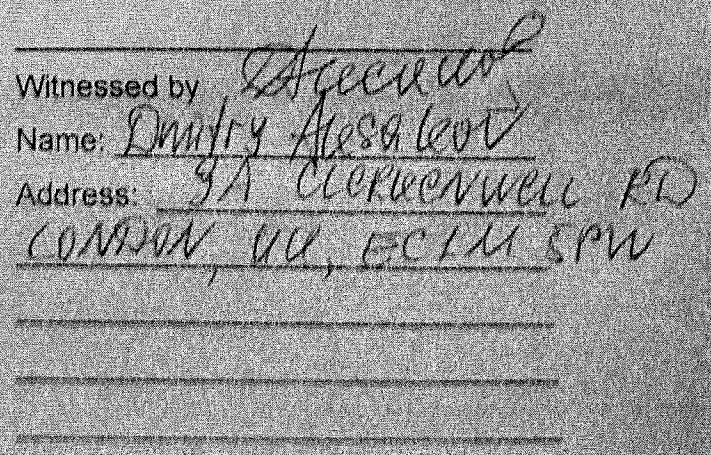 Witnessed by
Name: Dmitry
Address: 31 CLERKENWELL RD
LONDON, UK, EC1M 5PW